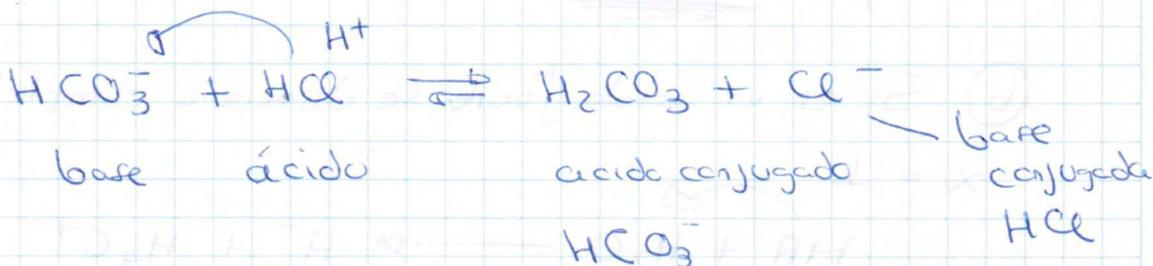 H⁺
HCO₃⁻ + HCl ⇌ H₂CO₃ + Cl⁻
base ácido acido conjugado base conjugada
HCO₃⁻ HCl